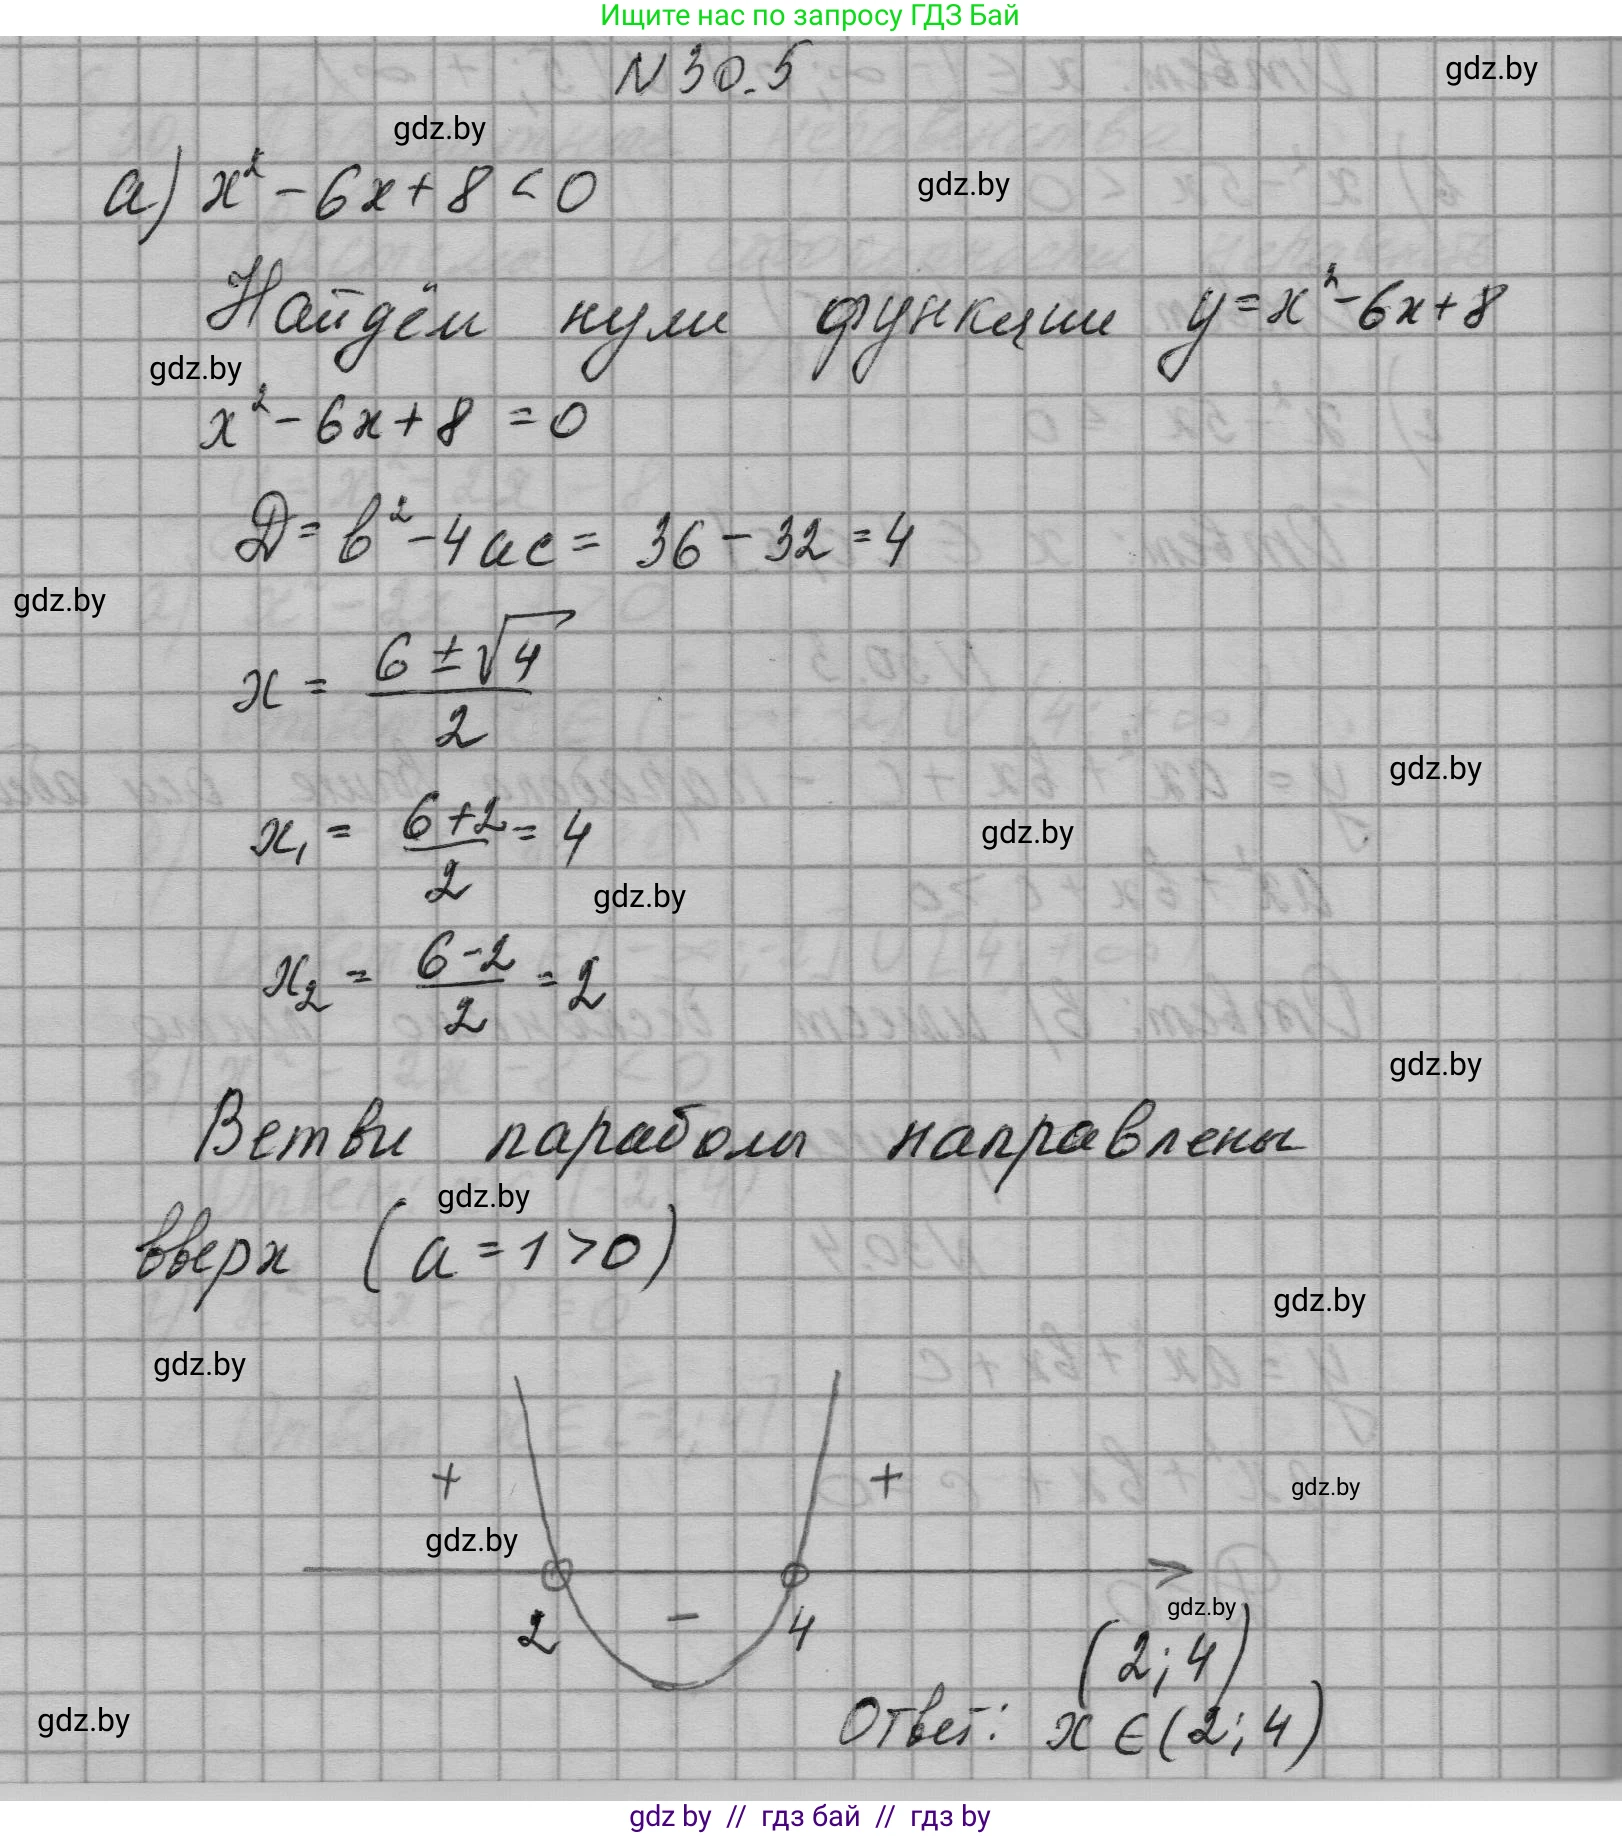 Ищите нас по запросу ГДЗ Бай
N 30.5
gdz.by
gdz.by
а) x² - 6x + 8 < 0
gdz.by
Найдём нули функции y = x² - 6x + 8
gdz.by
x² - 6x + 8 = 0
D = b² - 4ac = 36 - 32 = 4
gdz.by
x = (6 ± √4) / 2
gdz.by
x₁ = (6 + 2) / 2 = 4
gdz.by
gdz.by
x₂ = (6 - 2) / 2 = 2
gdz.by
Ветви параболы направлены
gdz.by
вверх (a = 1 > 0)
gdz.by
gdz.by
+ +
gdz.by
gdz.by
2 - 4
gdz.by
(2; 4)
gdz.by
Ответ: x ∈ (2; 4)
gdz by // гдз бай // гдз by